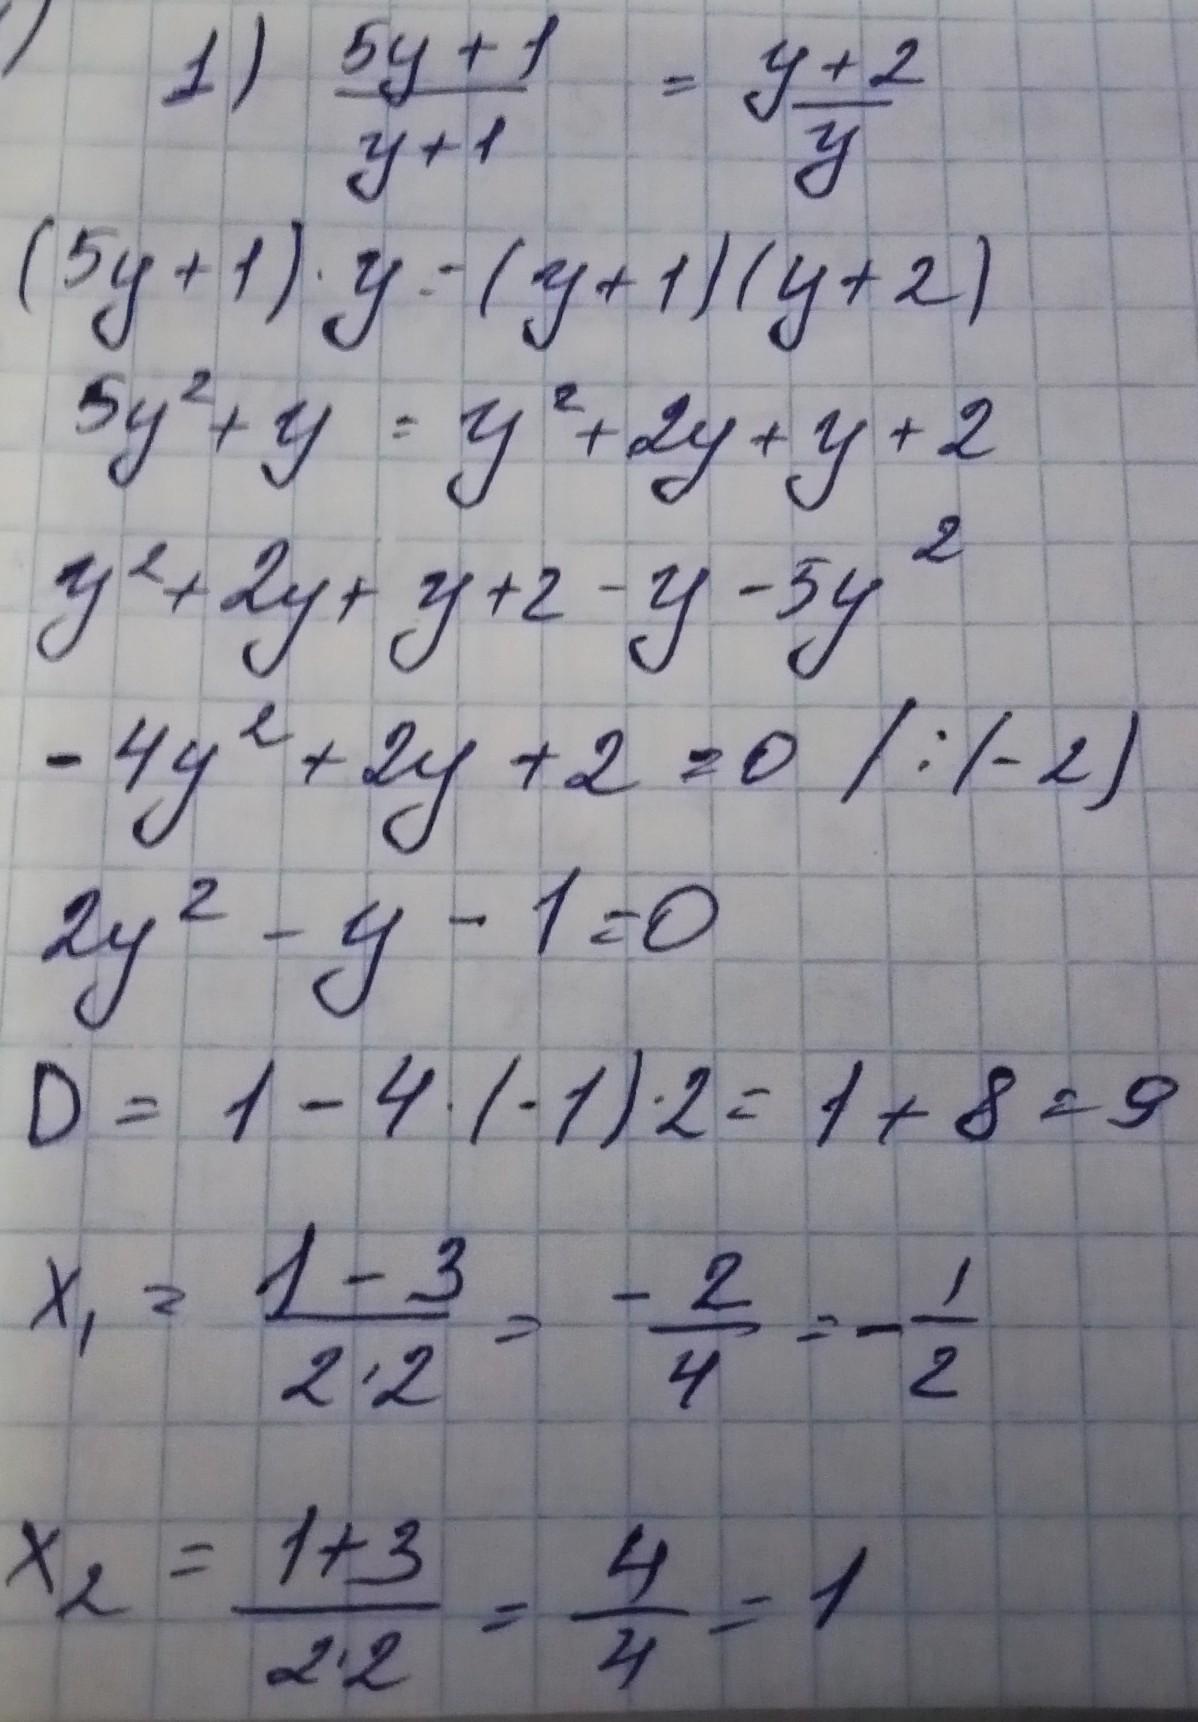 1) (5y+1)/(y+1) = (y+2)/y
(5y+1)·y=(y+1)(y+2)
5y²+y = y²+2y+y+2
y²+2y+y+2-y-5y²
-4y²+2y+2=0 /:(-2)
2y²-y-1=0
D=1-4·(-1)·2=1+8=9
x₁ = (1-3)/(2·2) = -2/4 = -1/2
x₂ = (1+3)/(2·2) = 4/4 = 1